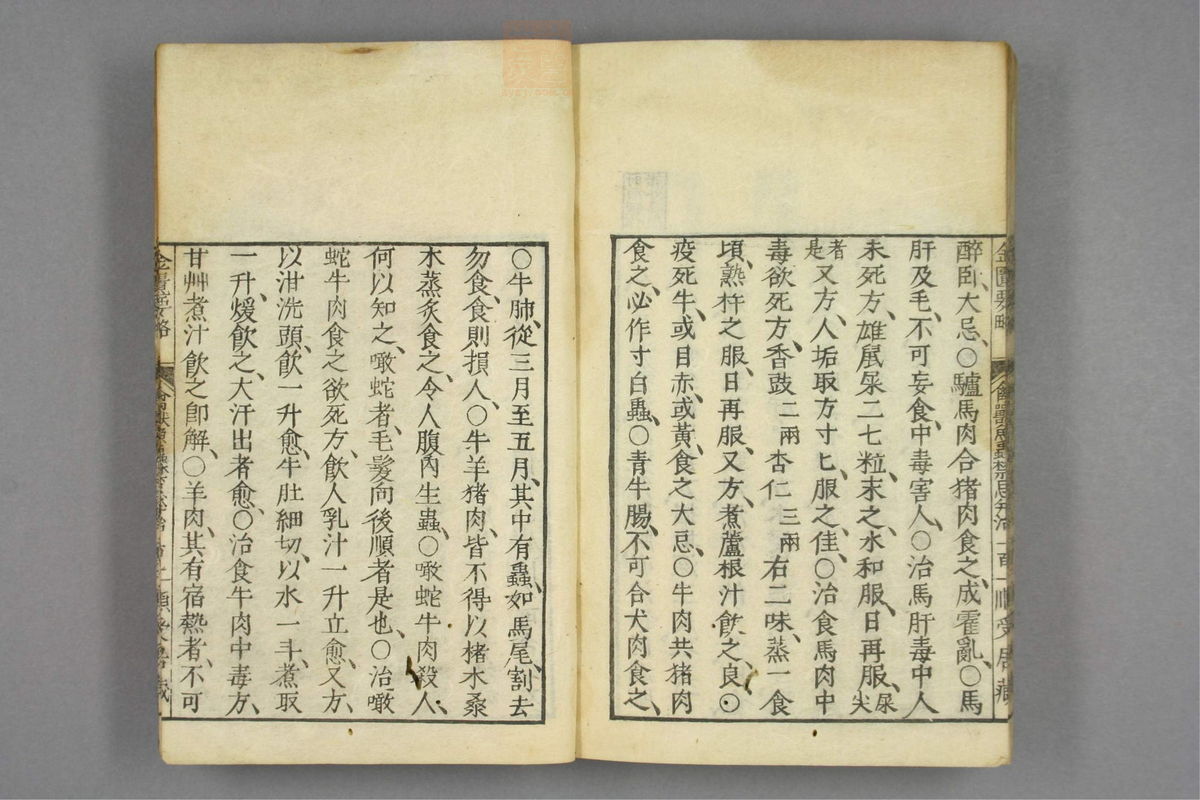 醉臥、大忌、〇驢馬肉合猪肉食之、成霍亂、〇馬
肝及毛、不可妄食、中毒害人、〇治馬肝毒中人
未死方、雄鼠屎二七粒、末之、水和服、日再服、屎尖
者是又方、人垢取方寸匕、服之佳、〇治食馬肉中
毒欲死方、香豉二兩杏仁三兩右二味、蒸一食
頃、熟杵之服、日再服、又方、煮蘆根汁飲之良、〇
疫死牛、或目赤、或黃、食之大忌、〇牛肉共猪肉
食之、必作寸白蟲、〇青牛腸、不可合犬肉食之、
〇牛肺、從三月至五月、其中有蟲、如馬尾、割去
勿食、食則損人、〇牛羊猪肉、皆不得以楮木桑
木蒸炙食之、令人腹內生蟲、〇噉蛇牛肉殺人、
何以知之、噉蛇者、毛髮向後順者是也、〇治噉
蛇牛肉食之欲死方、飲人乳汁一升立愈、又方、
以泔洗頭、飲一升愈、牛肚細切、以水一斗、煮取
一升、煖飲之、大汗出者愈、〇治食牛肉中毒方、
甘艸煮汁飲之卽解、〇羊肉、其有宿熱者、不可